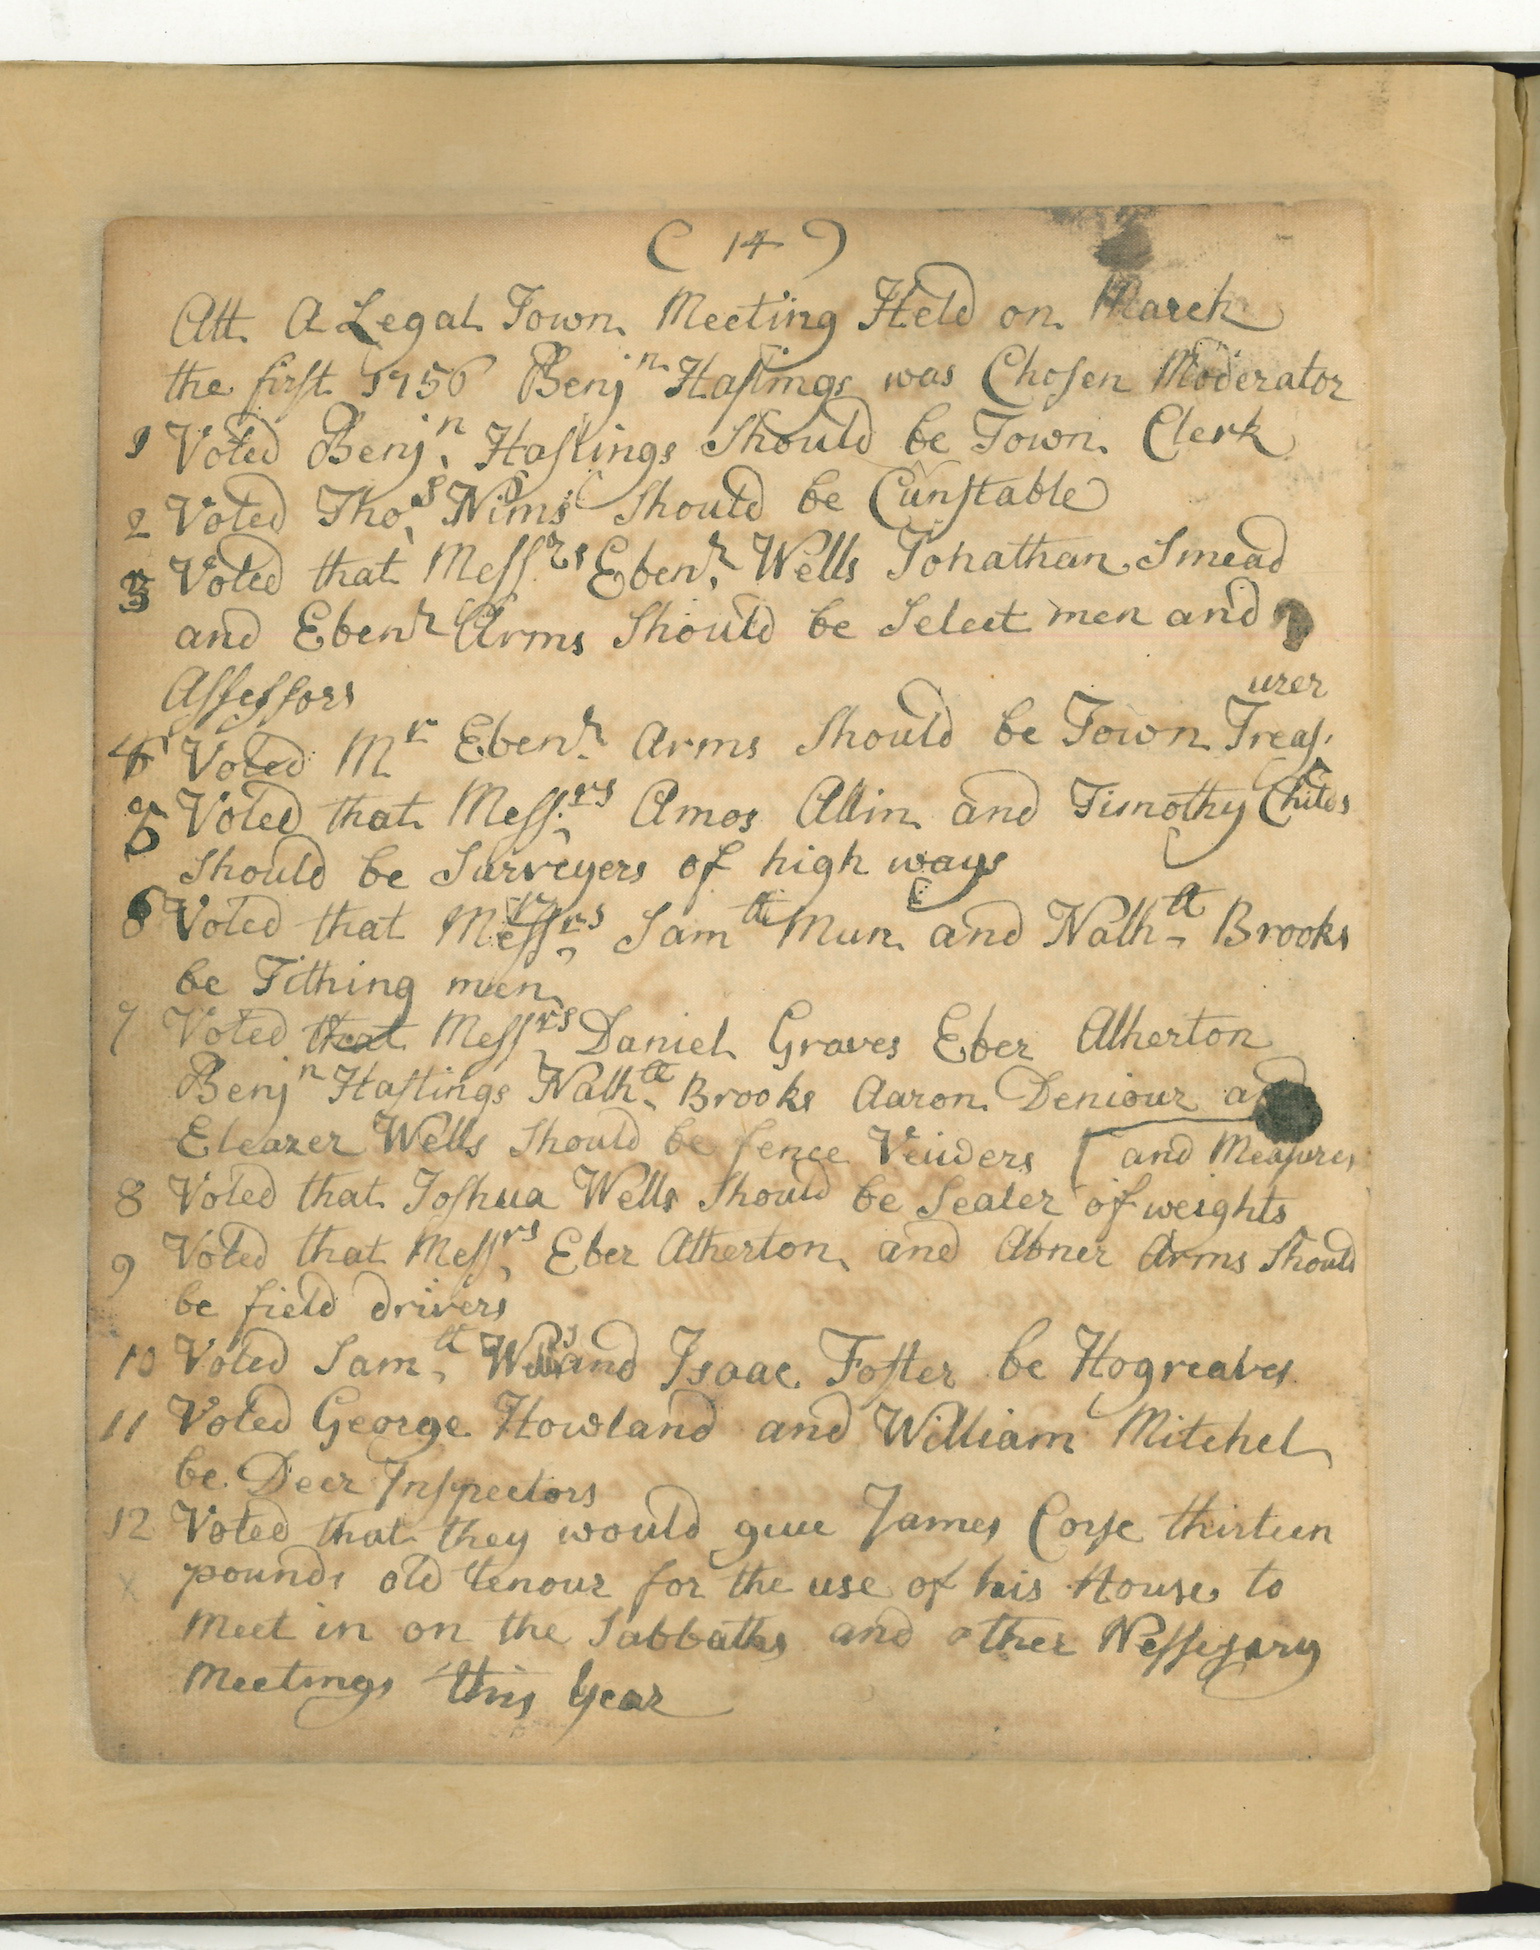 ( 14 )
Att A Legal Town Meeting Held on March
the first 1756 Benjn Hastings was Chosen Moderator
1 Voted Benjn Hastings Should be Town Clerk
2 Voted Thos Nims Should be Cunstable
3 Voted that Messrs Ebenr Wells Jonathan Smead
and Ebenr Arms Should be Select men and
Assessors
4 Voted Mr Ebenr Arms Should be Town Treasurer
5 Voted that Messrs Amos Allin and Timothy Childs
Should be Surveyers of high ways
6 Voted that Messrs Samll Mun and Nathll Brooks
be Tithing men
7 Voted that Messrs Daniel Graves Eber Atherton
Benjn Hastings Nathll Brooks Aaron Deniour
Eleazer Wells Should be fence Veiwers
[ and Measures
8 Voted that Joshua Wells Should be Sealer of weights
9 Voted that Messrs Eber Atherton and Abner Arms Should
be field drivers
10 Voted Samll Wells and Isaac Foster be Hogreaves
11 Voted George Howland and William Mitchel
be Deer Inspectors
12 Voted that they would giue James Corse thirteen
x pounds old tenour for the use of his House to
Meet in on the Sabbaths and other Nessesary
Meetings this Year